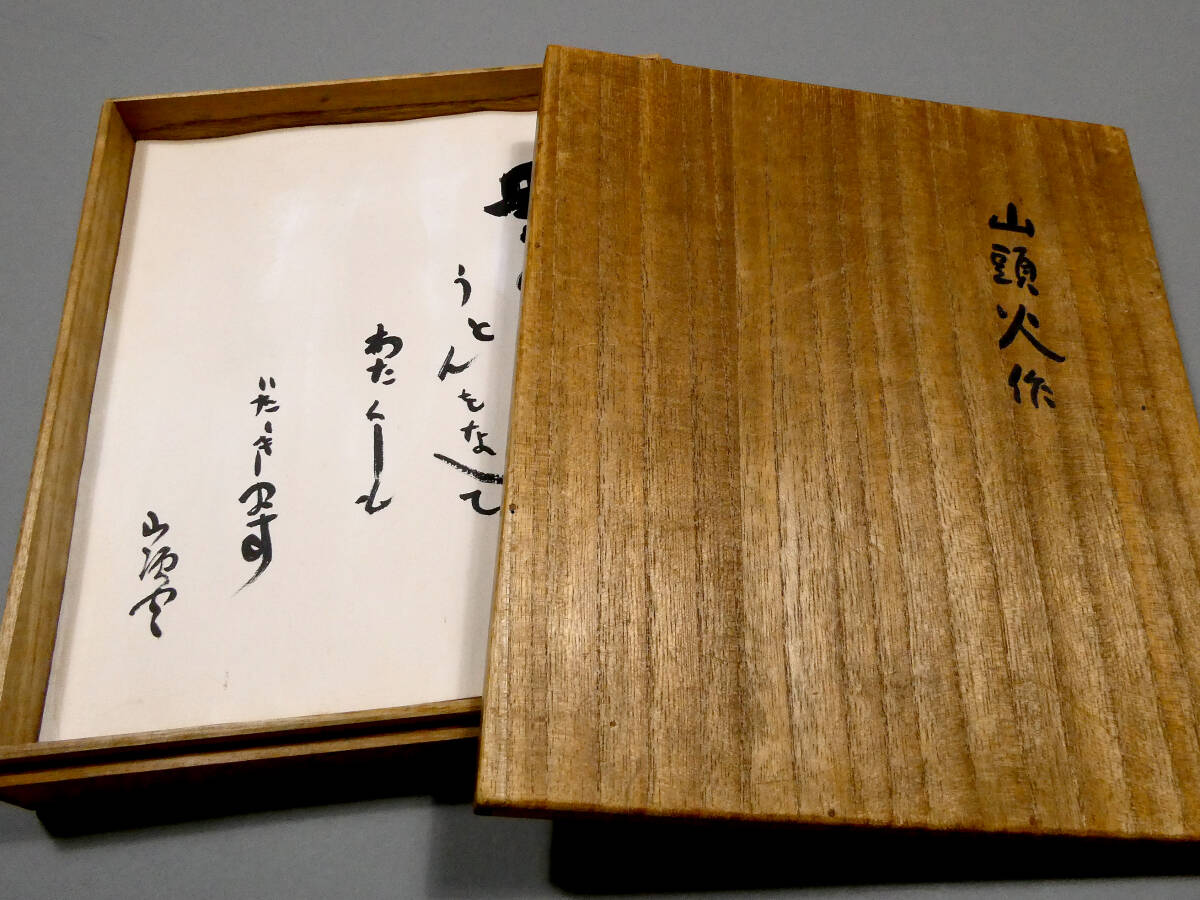 山頭火作
うとんそなへて
わたくしも
いたゝきます
山頭火